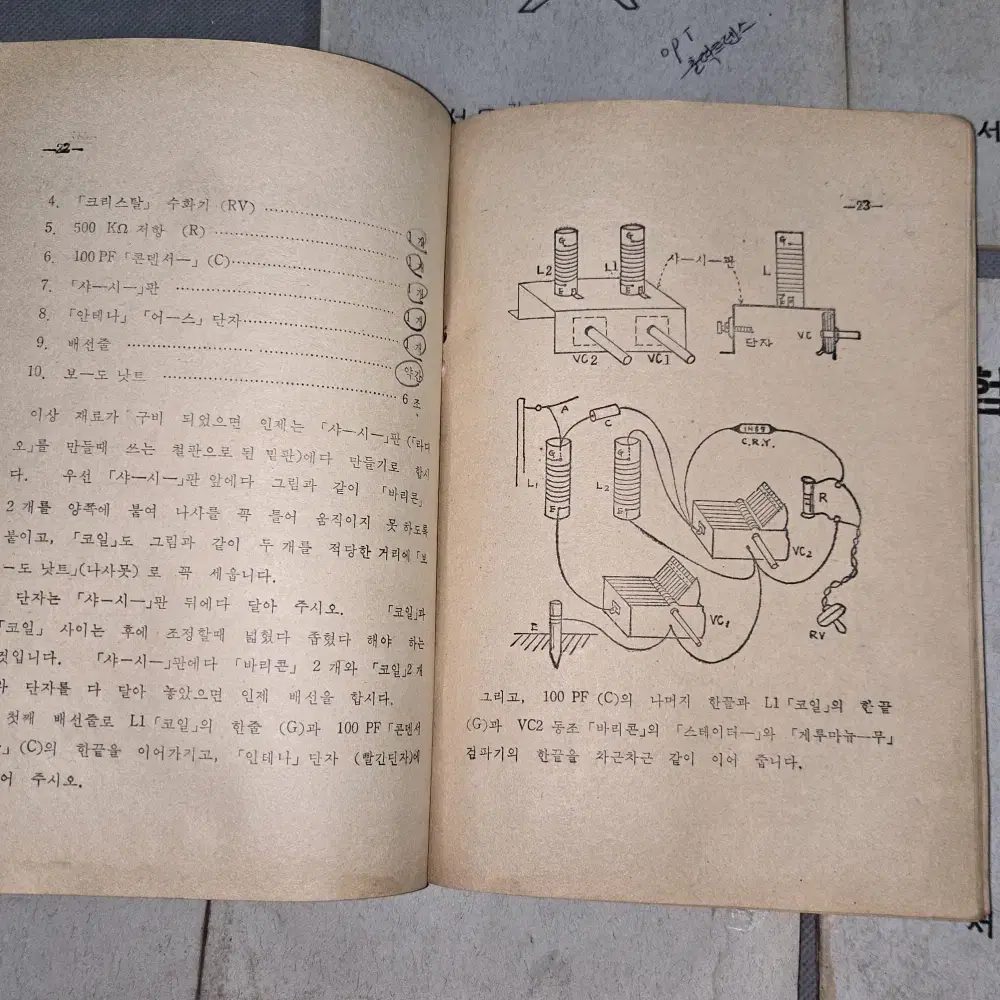 OPT
—22—
4. 「크리스탈」 수화기 (RV) ……………………
5. 500 KΩ 저항 (R) …………………………… 1 개
6. 100 PF 「콘덴서—」 (C) …………………… 1 개
7. 「샤—시—」판 …………………………… 1 개
8. 「안테나」 「어—스」 단자 ………………… 1 개
9. 배선줄 ………………………………… 1 개
10. 보—도 낫트 …………………………… 약간
6 조
이상 재료가 구비 되었으면 인제는 「샤—시—」판 (「라디
오」를 만들때 쓰는 철판으로 된 밑판)에다 만들기로 합시
다. 우선 「샤—시—」판 앞에다 그림과 같이 「바리콘」
2 개를 양쪽에 붙여 나사를 꼭 틀어 움직이지 못 하도록
붙이고, 「코일」도 그림과 같이 두 개를 적당한 거리에 「보
—도 낫트」(나사못) 로 꼭 세웁니다.
단자는 「샤—시—」판 뒤에다 달아 주시오. 「코일」과
「코일」 사이는 후에 조정할때 넓혔다 좁혔다 해야 하는
것입니다. 「샤—시—」판에다 「바리콘」 2 개와 「코일」2 개
와 단자를 다 달아 놓았으면 인제 배선을 합시다.
첫째 배선줄로 L1 「코일」의 한줄 (G)과 100 PF 「콘덴서
(C)의 한끝을 이어가기고, 「인테나」 단자 (빨간딘자)에
어 주시오.
—23—
G L2 E
G L1 E
샤—시—판
VC2 VC1
G L
단자 VC
A C
1N69
C.R.Y.
G L1 E
G L2 E
R
VC2
VC1
E
RV
그리고, 100 PF (C)의 나머지 한끝과 L1 「코일」의 한끝
(G)과 VC2 동조 「바리콘」의 「스테이더—」와 「게루마늄—무」
검파기의 한끝을 차근차근 같이 이어 줍니다.
서
서